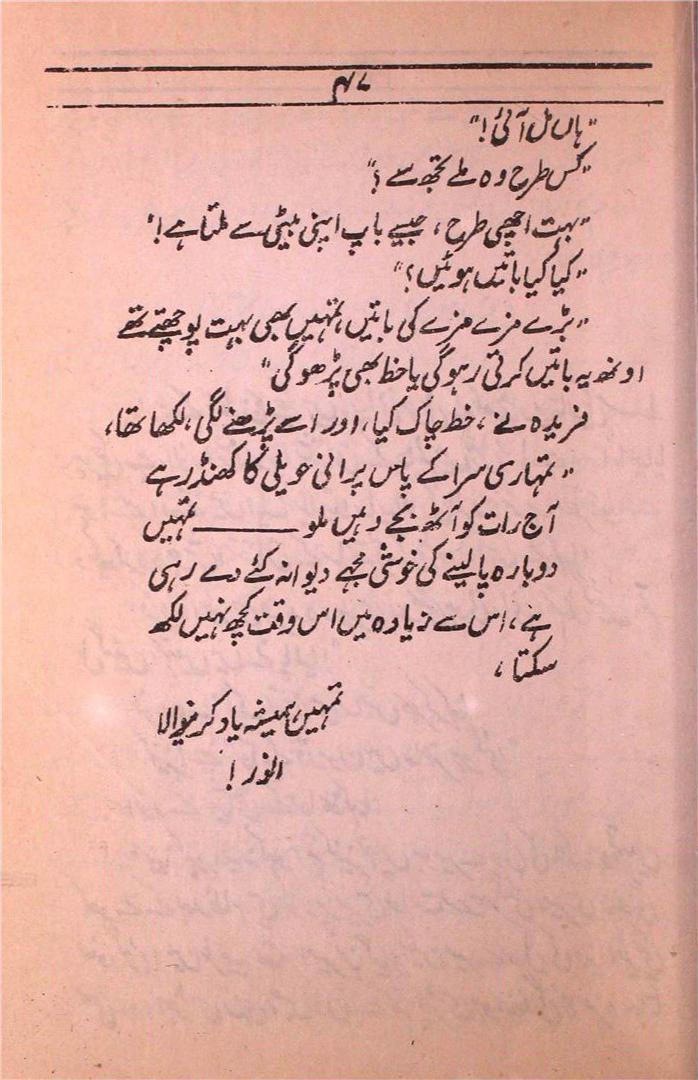 ۴۷
"ہاں مل آئی!"
"کس طرح وہ ملے تجھ سے؟"
"بہت اچھی طرح، جیسے باپ اپنی بیٹی سے ملتا ہے!"
"کیا کیا باتیں ہوئیں؟"
"بڑے مزے مزے کی باتیں، تمہیں بھی بہت پوچھتے تھے
اونھ یہ باتیں کرتی رہوگی یا خط بھی پڑھوگی"
فریدہ نے، خط چاک کیا، اور اسے پڑھنے لگی، لکھا تھا،
"تمہاری سرا کے پاس پرانی حویلی کا کھنڈر ہے
آج رات کو آٹھ بجے وہیں ملو ——— تمہیں
دوبارہ پالینے کی خوشی مجھے دیوانہ کئے دے رہی
ہے، اس سے زیادہ میں اس وقت کچھ نہیں لکھ
سکتا،
تمہیں ہمیشہ یاد کرنیوالا
انور!